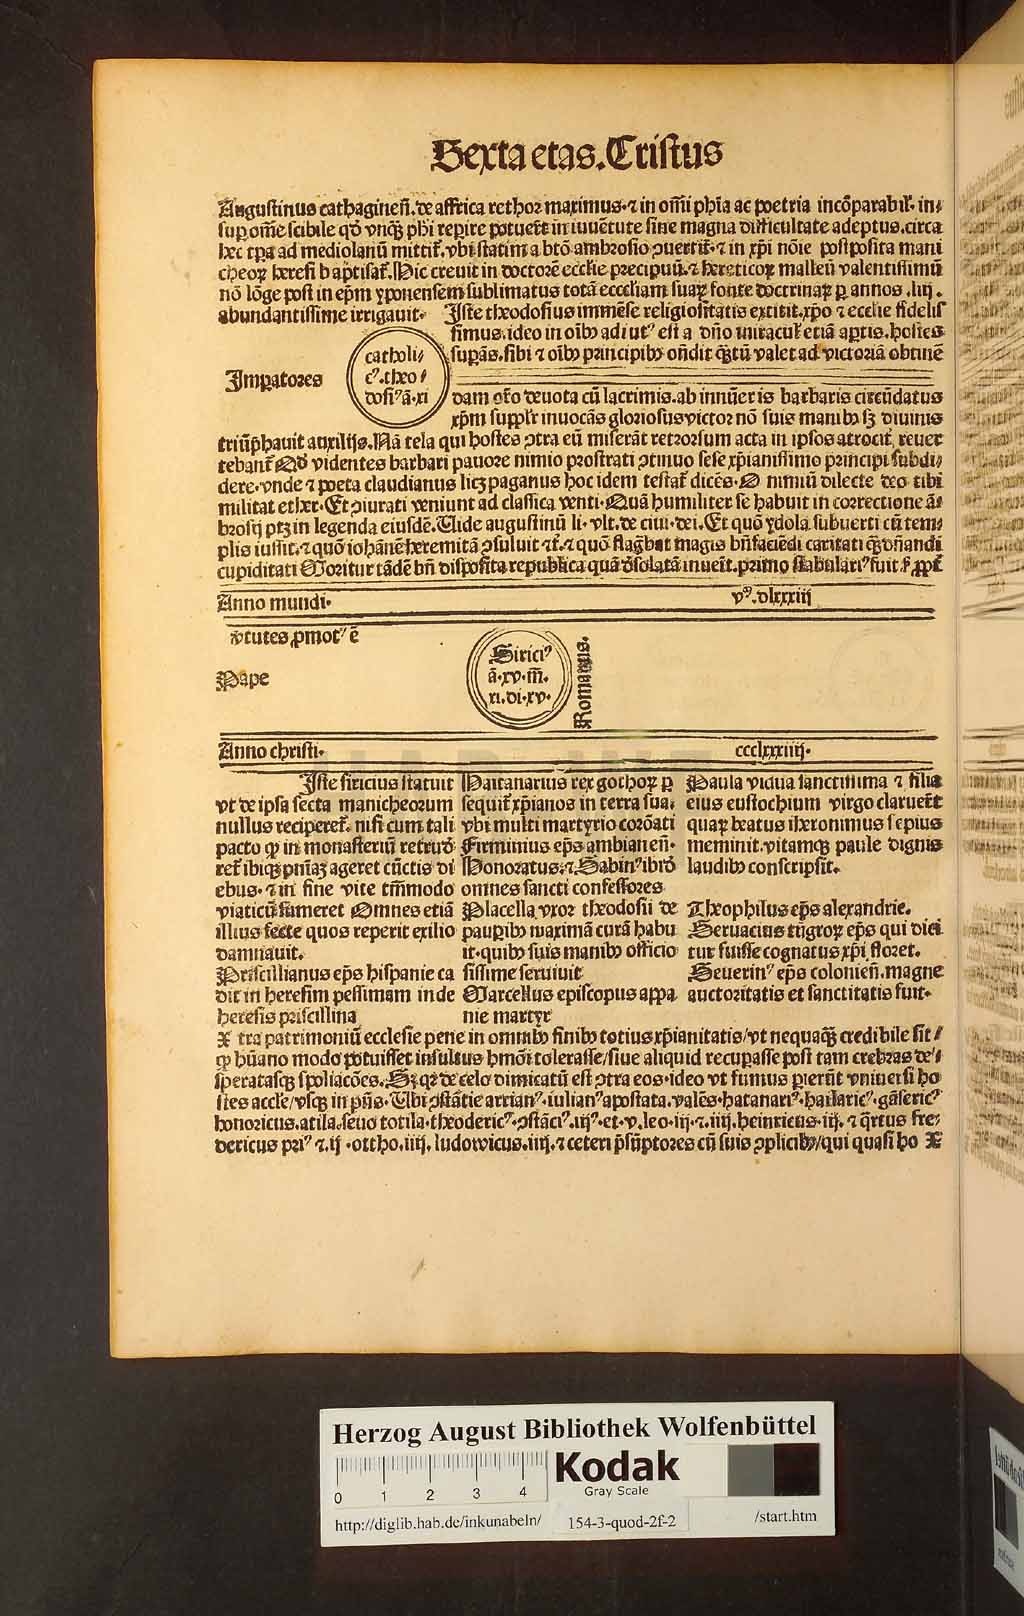 Sexta etas. Cristus
Augustinus cathagineñ. de affrica rethor maximus. ⁊ in om̃i phĩa ac poetria incõparabil̃. in⸗
sup om̃e scibile qd̾ vnq̃ȝ ph̃i repire potuer̃t in iuuẽtute sine magna difficultate adeptus. circa
hec tp̃a ad mediolanũ mittit̃. vbi statim a btõ ambrosio ꝯuertit̃. ⁊ in xp̃i nõie postposita mani
cheoꝝ heresi baptisat̃. Hic creuit in doctorẽ ecclie precipuũ. ⁊ hereticoꝝ malleũ valentissimũ
nõ lõge post in ep̃m yponensem sublimatus totã eccliam suaꝝ fonte doctrinaꝝ ꝑ annos .liij.
abundantissime irrigauit.
Iste theodosius immẽse religiositatis extitit. xp̃o ⁊ ecclie fidelis
simus. ideo in oĩbꝰ adiutꝰ est a dño miracul̃ etiã aptis. hostes
supãs. sibi ⁊ oĩbꝰ principibꝰ oñdit q̃ȝtũ valet ad victoriã obtinẽ
Imperatores
catholi⸗
cꝰ. theo⸗
dosiꝰ ã. xi
dam or̃o deuota cũ lacrimis. ab innũeris barbaris circũdatus
xp̃m supplr̃ inuocãs gloriosus victor nõ suis manibꝰ sȝ diuinis
triũphauit auxilijs. Nã tela qui hostes ꝯtra eũ miserãt retrorsum acta in ipsos atrocit̃ reuer
tebant̃ Qd̾ videntes barbari pauore nimio prostrati ꝯtinuo sese xp̃ianissimo principi subdi⸗
dere. vnde ⁊ poeta claudianus licȝ paganus hoc idem testat̃ dicẽs. O nimiũ dilecte deo tibi
militat ether. Et ꝯiurati veniunt ad classica venti. Quã humiliter se habuit in correctione ã⸗
brosij ptȝ in legenda eiusdẽ. Uide augustinũ li. vlt. de ciui. dei. Et quõ ydola subuerti cũ tem⸗
plis iussit. ⁊ quõ iohãnẽ heremitã ꝯsuluit ⁊c̃. ⁊ quõ flag̃bat magis bñfaciẽdi caritati q̃ȝ dñandi
cupiditati Moritur tãdẽ bñ disposita republica quã d̾solatã inuen̾it. primo stabulariꝰ fuit ⁊ ꝓpt̃
Anno mundi.
vᵐ.dlxxxiij
v̾tutes ꝓmotꝰ ẽ
Pape
Siriciꝰ
ã. xv. m̃.
xi. di. xv.
Romanus.
Anno christi.
ccclxxxiiij.
Iste siricius statuit
vt de ipsa secta manicheorum
nullus reciperet̃. nisi cum tali
pacto ꝙ in monasteriũ retrud̾
ret̃ ibiqȝ pñiaȝ ageret cũctis di
ebus. ⁊ in fine vite tm̃modo
viaticũ sumeret Omnes etiã
illius secte quos reperit exilio
damnauit.
Priscillianus ep̃s hispanie ca
dit in heresim pessimam inde
heresis priscillina
Haitanarius rex gothoꝝ ꝑ
sequit̃ xp̃ianos in terra sua.
vbi multi martyrio corõati
Firminius ep̃s ambianeñ.
Honoratus. ⁊ Sabinꝰ ibrõ
omnes sancti confessores
Placella vxor theodosii de
pauꝑibꝰ maximã curã habu
it. quibꝰ suis manibꝰ officio
sissime seruiuit
Marcellus episcopus appa
nie martyr
Paula vidua sanctissima ⁊ filia
eius eustochium virgo claruer̃t
quaꝝ beatus iheronimus sepius
meminit. vitamqȝ paule dignis
laudibꝰ conscripsit.
Theophilus ep̃s alexandrie.
Seruacius tũgroꝝ ep̃s qui dici
tur fuisse cognatus xp̃i floret.
Seuerinꝰ ep̃s colonieñ. magne
auctoritatis et sanctitatis fuit.
X tra patrimoniũ ecclesie pene in omnibꝰ finibꝰ totius xp̃ianitatis/vt nequaq̃ȝ credibile sit/
ꝙ hũano modo potuisset insultus hm̃õi tolerasse/siue aliquid recupasse post tam crebras de⸗
speratasqȝ spoliacões. Sȝ qꝛ de celo dimicatũ est ꝯtra eos. ideo vt fumus ꝑierũt vniuersi ho
stes accl̃e/vsqȝ in pñs. Ubi ꝯstãtie arrianꝰ. iulianꝰ apostata. valẽs. hatanariꝰ. hailaricꝰ. gãsericꝰ
honoricus. atila. seuo totila. theodericꝰ. ꝯstãcꝰ .iijꝰ. et .v. leo .iij. ⁊ .iiij. heinricus .iij. ⁊ q̃rtus fre⸗
dericus priꝰ ⁊ .ij. ottho. iiij. ludowicus. iiij. ⁊ ceteri p̃sũptores cũ suis ꝯplicibꝰ/qui quasi ho X
Herzog August Bibliothek Wolfenbüttel
0 1 2 3 4
Kodak
Gray Scale
http://diglib.hab.de/inkunabeln/
154-3-quod-2f-2
/start.htm